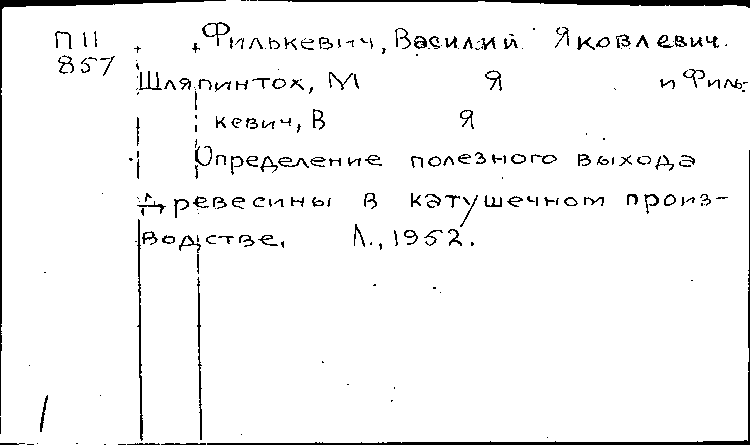 П 11 Филькевич, Василий Яковлевич.
857
Шляпинтох, М Я и Филь-
кевич, В Я
Определение полезного выхода
древесины в катушечном произ-
водстве. Л., 1952.